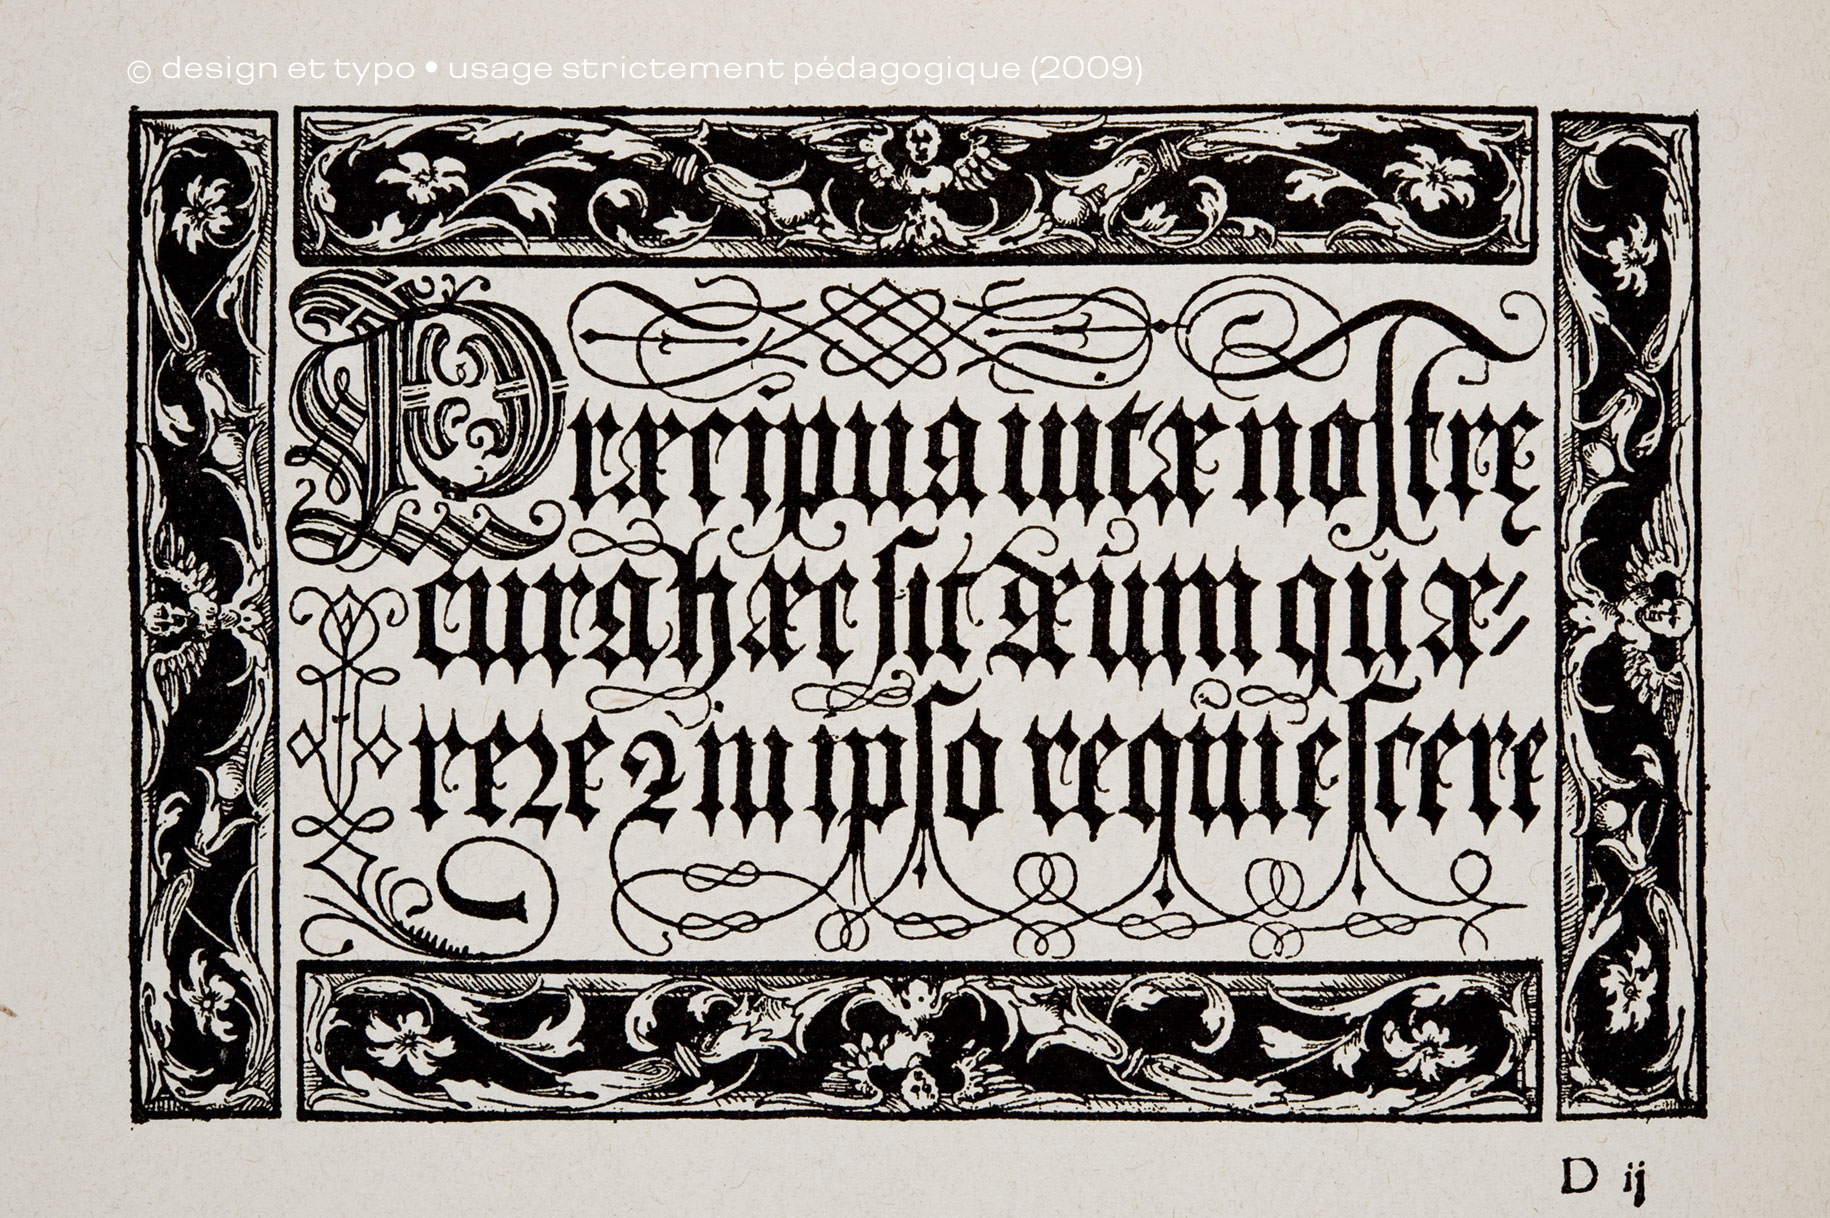 © design et typo • usage strictement pédagogique (2009)
Præcipua uitæ noſtrę
cura hæc ſit dæum quæ⸗
reꝛe ⁊ in ipſo requieſcere
D ij